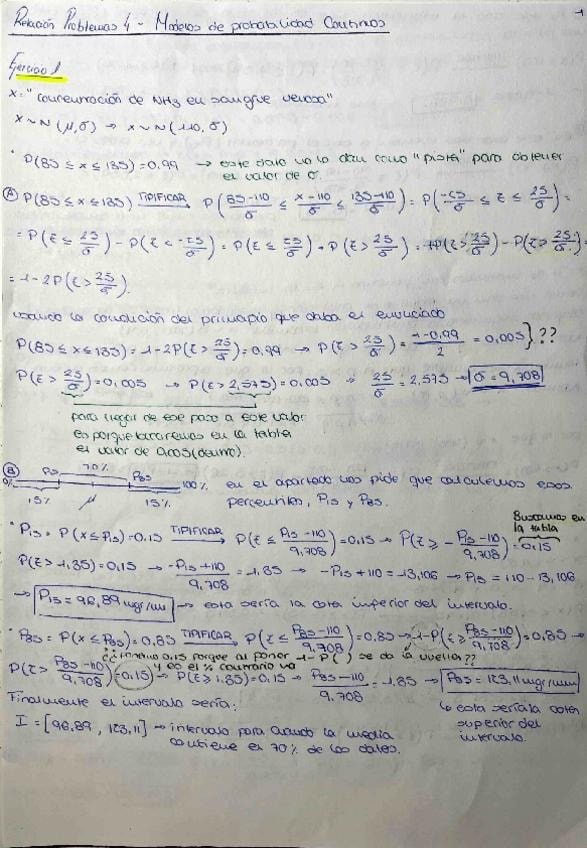 Relación Problemas 4 - Modelos de probabilidad Continuos
Ejercicio 1
X = "concentración de NH3 en sangre venosa"
X ~ N(μ, σ) → X ~ N(110, σ)
· P(85 ≤ x ≤ 135) = 0.99 → este dato no lo dan como "pista" para obtener
el valor de σ.
(A) P(85 ≤ x ≤ 135) TIPIFICAR → P(85-110/σ ≤ x-110/σ ≤ 135-110/σ) = P(-25/σ ≤ z ≤ 25/σ) =
= P(z ≤ 25/σ) - P(z < -25/σ) = P(z ≤ 25/σ) - P(z > 25/σ) = 1-P(z > 25/σ) - P(z > 25/σ) =
= 1-2P(z > 25/σ).
usando la condición del principio que daba el enunciado
P(85 ≤ x ≤ 135) = 1-2P(z > 25/σ) = 0.99 → P(z > 25/σ) = 1-0.99/2 = 0.005 } ??
P(z > 25/σ) = 0.005 → P(z > 2,575) = 0.005 → 25/σ = 2,575 → σ = 9,708
para llegar de ese paso a este valor
es porque buscaremos en la tabla
el valor de 0.005 (dentro).
(B) 0% P15 70% P85 100%
15% μ 15%
en el apartado nos pide que calculemos esos
percentiles, P15 y P85.
Buscamos en
la tabla
· P15 = P(x ≤ P15) = 0.15 TIPIFICAR → P(z ≤ P15-110/9,708) = 0.15 → P(z ≥ -P15-110/9,708) = 0.15
P(z > 1.35) = 0.15 → -P15+110/9,708 = 1.35 → -P15+110 = 13,106 → P15 = 110-13,106
→ P15 = 96,89 mgr/ml → esta sería la cota inferior del intervalo.
· P85 = P(x ≤ P85) = 0.85 TIPIFICAR → P(z ≤ P85-110/9,708) = 0.85 → 1-P(z ≥ P85-110/9,708) = 0.85 →
0.15 porque al poner 1-P( ) se da la vuelta??
y es el % contrario
P(z > P85-110/9,708) = 0.15 → P(z ≥ 1.35) = 0.15 → P85-110/9,708 = 1.35 → P85 = 123,11 mgr/ml
Finalmente el intervalo sería:
↳ esta sería la cota
superior del
intervalo.
I = [96,89, 123,11] → intervalo para cuando la media
contiene el 70% de los datos.